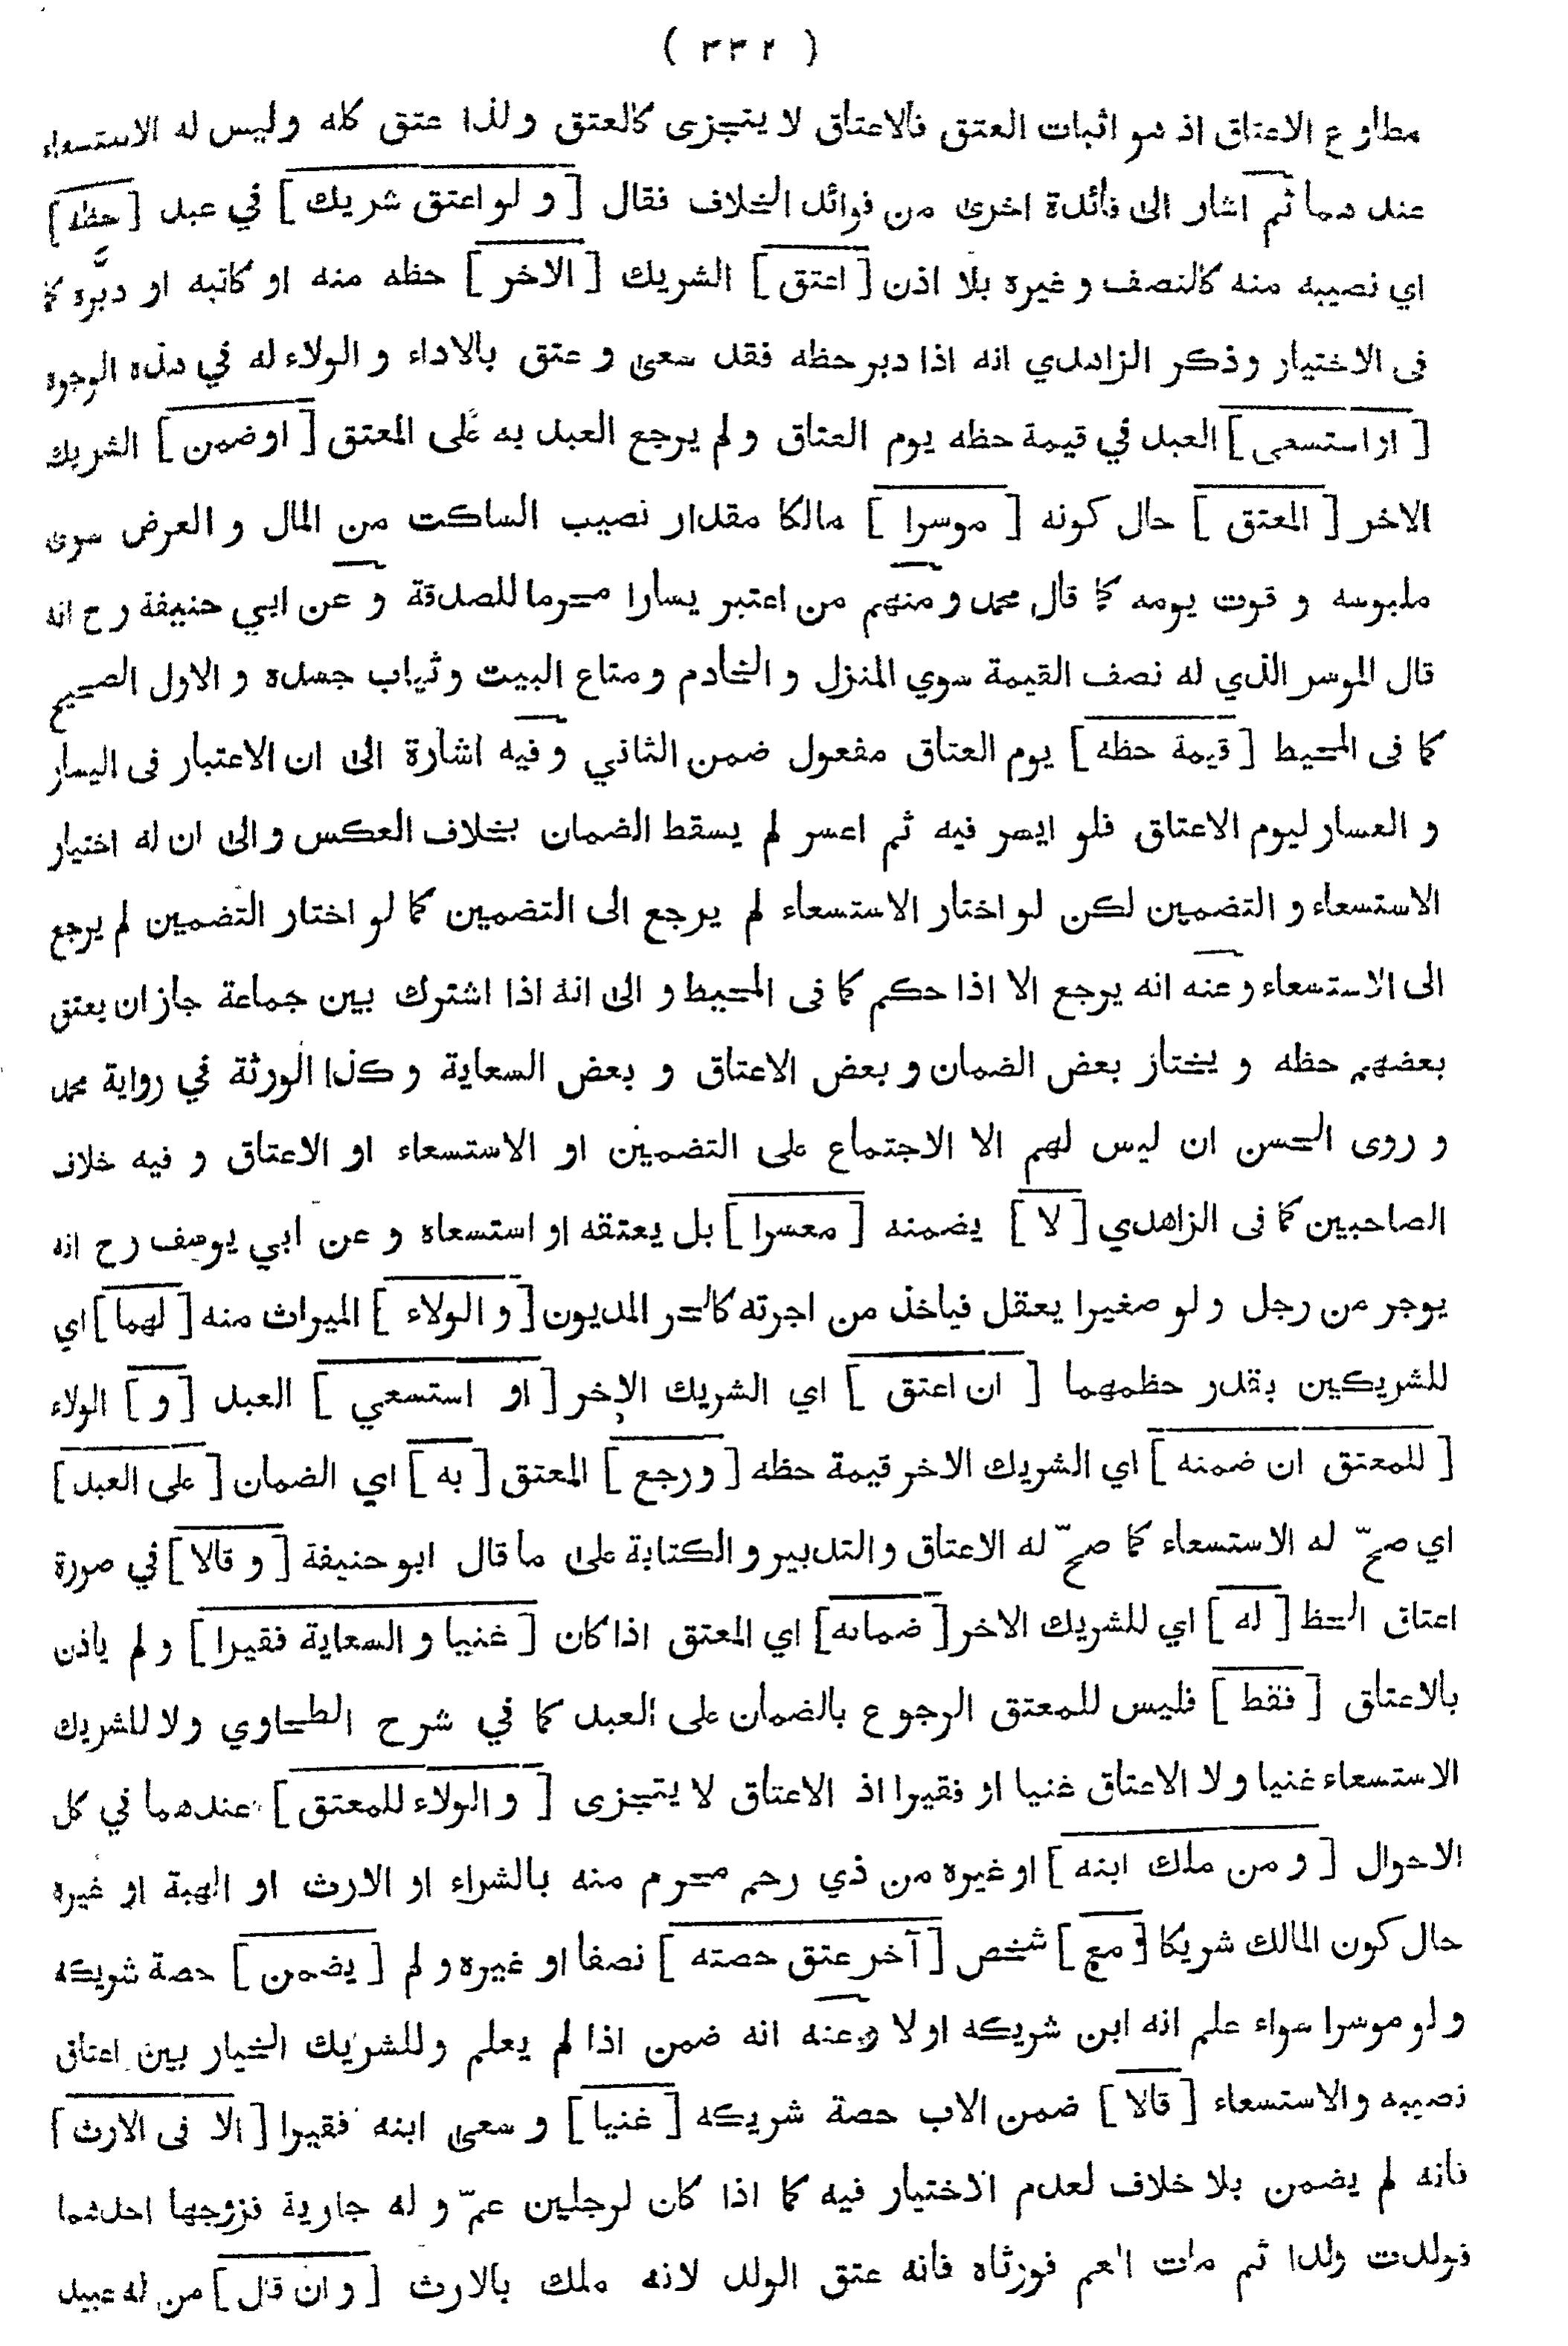 ( ٣٣٢ )
مطاوع الاعتاق اذ هو اثبات العتق فالاعتاق لا يتجزى كالعتق ولذا عتق كله وليس له الاستسعاء
عندهما ثم اشار الى فائدة اخرى من فوائد الخلاف فقال [ و لو اعتق شريك ] في عبد [ حظه ]
اي نصيبه منه كالنصف و غيره بلا اذن [ اعتق ] الشريك [ الاخر ] حظه منه او كاتبه او دبّره كما
فى الاختيار وذكر الزاهدي انه اذا دبر حظه فقد سعى و عتق بالاداء و الولاء له في هذه الوجوه
[ او استسعى ] العبد في قيمة حظه يوم العتاق و لم يرجع العبد به على المعتق [ او ضمن ] الشريك
الاخر [ المعتق ] حال كونه [ موسرا ] مالكا مقدار نصيب الساكت من المال و العرض سوى
ملبوسه و قوت يومه كما قال محمد و منهم من اعتبر يسارا محرما للصدقة و عن ابي حنيفة رح انه
قال الموسر الذي له نصف القيمة سوي المنزل و الخادم و متاع البيت و ثياب جسده و الاول الصحيح
كما فى المحيط [ قيمة حظه ] يوم العتاق مفعول ضمن الثاني و فيه اشارة الى ان الاعتبار فى اليسار
و العسار ليوم الاعتاق فلو ايسر فيه ثم اعسر لم يسقط الضمان بخلاف العكس و الى ان له اختيار
الاستسعاء و التضمين لكن لو اختار الاستسعاء لم يرجع الى التضمين كما لو اختار التضمين لم يرجع
الى الاستسعاء و عنه انه يرجع الا اذا حكم كما فى المحيط و الى انه اذا اشترك بين جماعة جاز ان يعتق
بعضهم حظه و يختار بعض الضمان و بعض الاعتاق و بعض السعاية و كذا الورثة في رواية محمد
و روى الحسن ان ليس لهم الا الاجتماع على التضمين او الاستسعاء او الاعتاق و فيه خلاف
الصاحبين كما فى الزاهدي [ لا ] يضمنه [ معسرا ] بل يعتقه او استسعاه و عن ابي يوسف رح انه
يوجر من رجل و لو صغيرا يعقل فياخذ من اجرته كالحر المديون [ و الولاء ] الميراث منه [ لهما ] اي
للشريكين بقدر حظهما [ ان اعتق ] اي الشريك الاخر [ او استسعي ] العبد [ و ] الولاء
[ للمعتق ان ضمنه ] اي الشريك الاخر قيمة حظه [ و رجع ] المعتق [ به ] اي الضمان [ على العبد ]
اي صحّ له الاستسعاء كما صحّ له الاعتاق و التدبير و الكتابة على ما قال ابو حنيفة [ و قالا ] في صورة
اعتاق الحظ [ له ] اي للشريك الاخر [ ضمانه ] اي المعتق اذا كان [ غنيا و السعاية فقيرا ] و لم ياذن
بالاعتاق [ فقط ] فليس للمعتق الرجوع بالضمان على العبد كما في شرح الطحاوي ولا للشريك
الاستسعاء غنيا و لا الاعتاق غنيا او فقيرا اذ الاعتاق لا يتجزى [ و الولاء للمعتق ] عندهما في كل
الاحوال [ و من ملك ابنه ] او غيره من ذي رحم محرم منه بالشراء او الارث او الهبة او غيره
حال كون المالك شريكا [ مع ] شخص [ آخر عتق حصته ] نصفا او غيره و لم [ يضمن ] حصة شريكه
و لو موسرا سواء علم انه ابن شريكه اولا و عنه انه ضمن اذا لم يعلم و للشريك الخيار بين اعتاق
نصيبه و الاستسعاء [ قالا ] ضمن الاب حصة شريكه [ غنيا ] و سعى ابنه فقيرا [ الا فى الارث ]
فانه لم يضمن بلا خلاف لعدم الاختيار فيه كما اذا كان لرجلين عمّ و له جارية فزوجها احدهما
فولدت ولدا ثم مات العم فورثاه فانه عتق الولد لانه ملك بالارث [ و ان قال ] من له عبيد